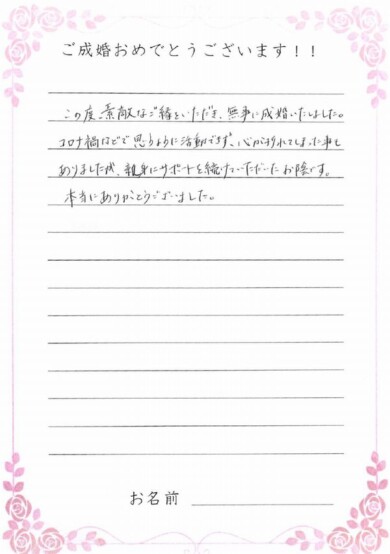 ご成婚おめでとうございます!!
この度、素敵なご縁をいただき、無事に成婚いたしました。
コロナ禍などで思うように活動できず、心が折れてしまった事も
ありましたが、親身にサポートを続けていただいたお陰です。
本当にありがとうございました。
お名前